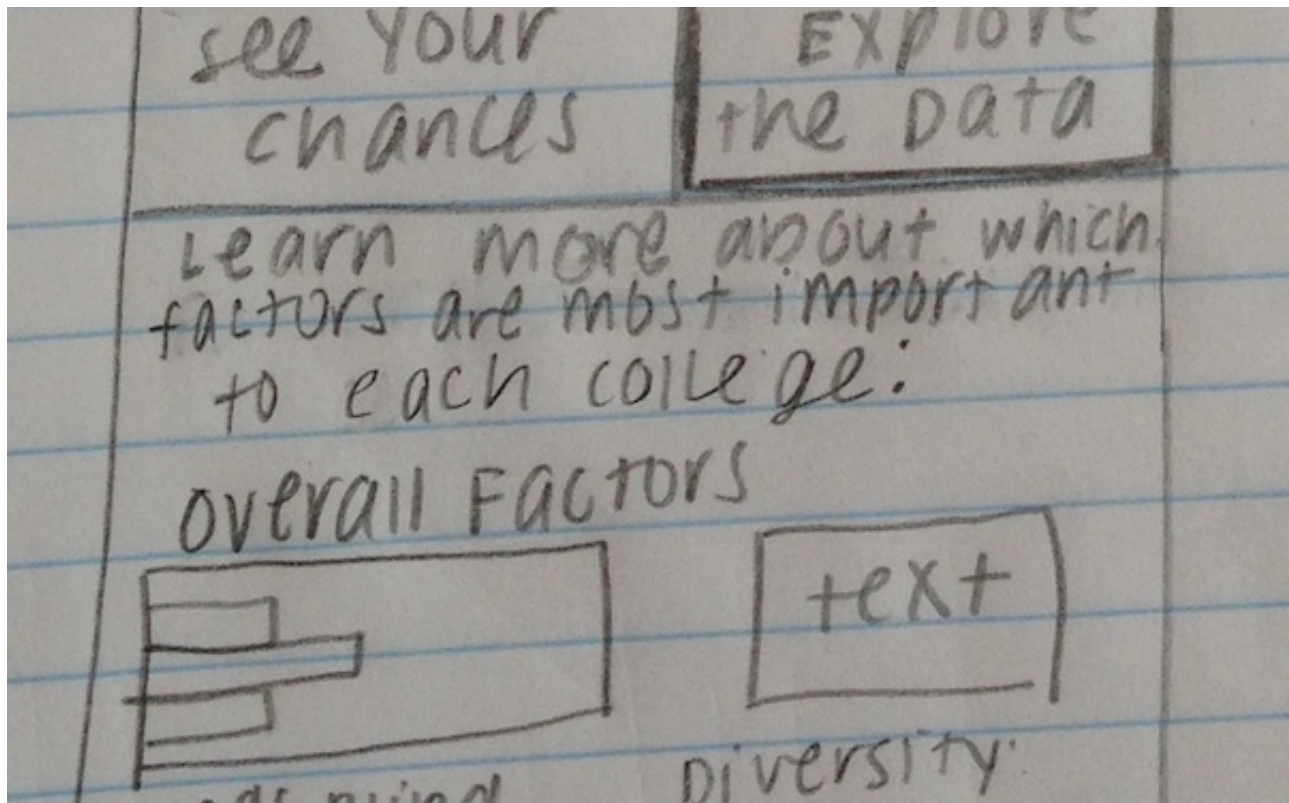 see Your
chances
Explore
the Data
Learn more about which
factors are most important
to each college:
Overall Factors
text
Diversity